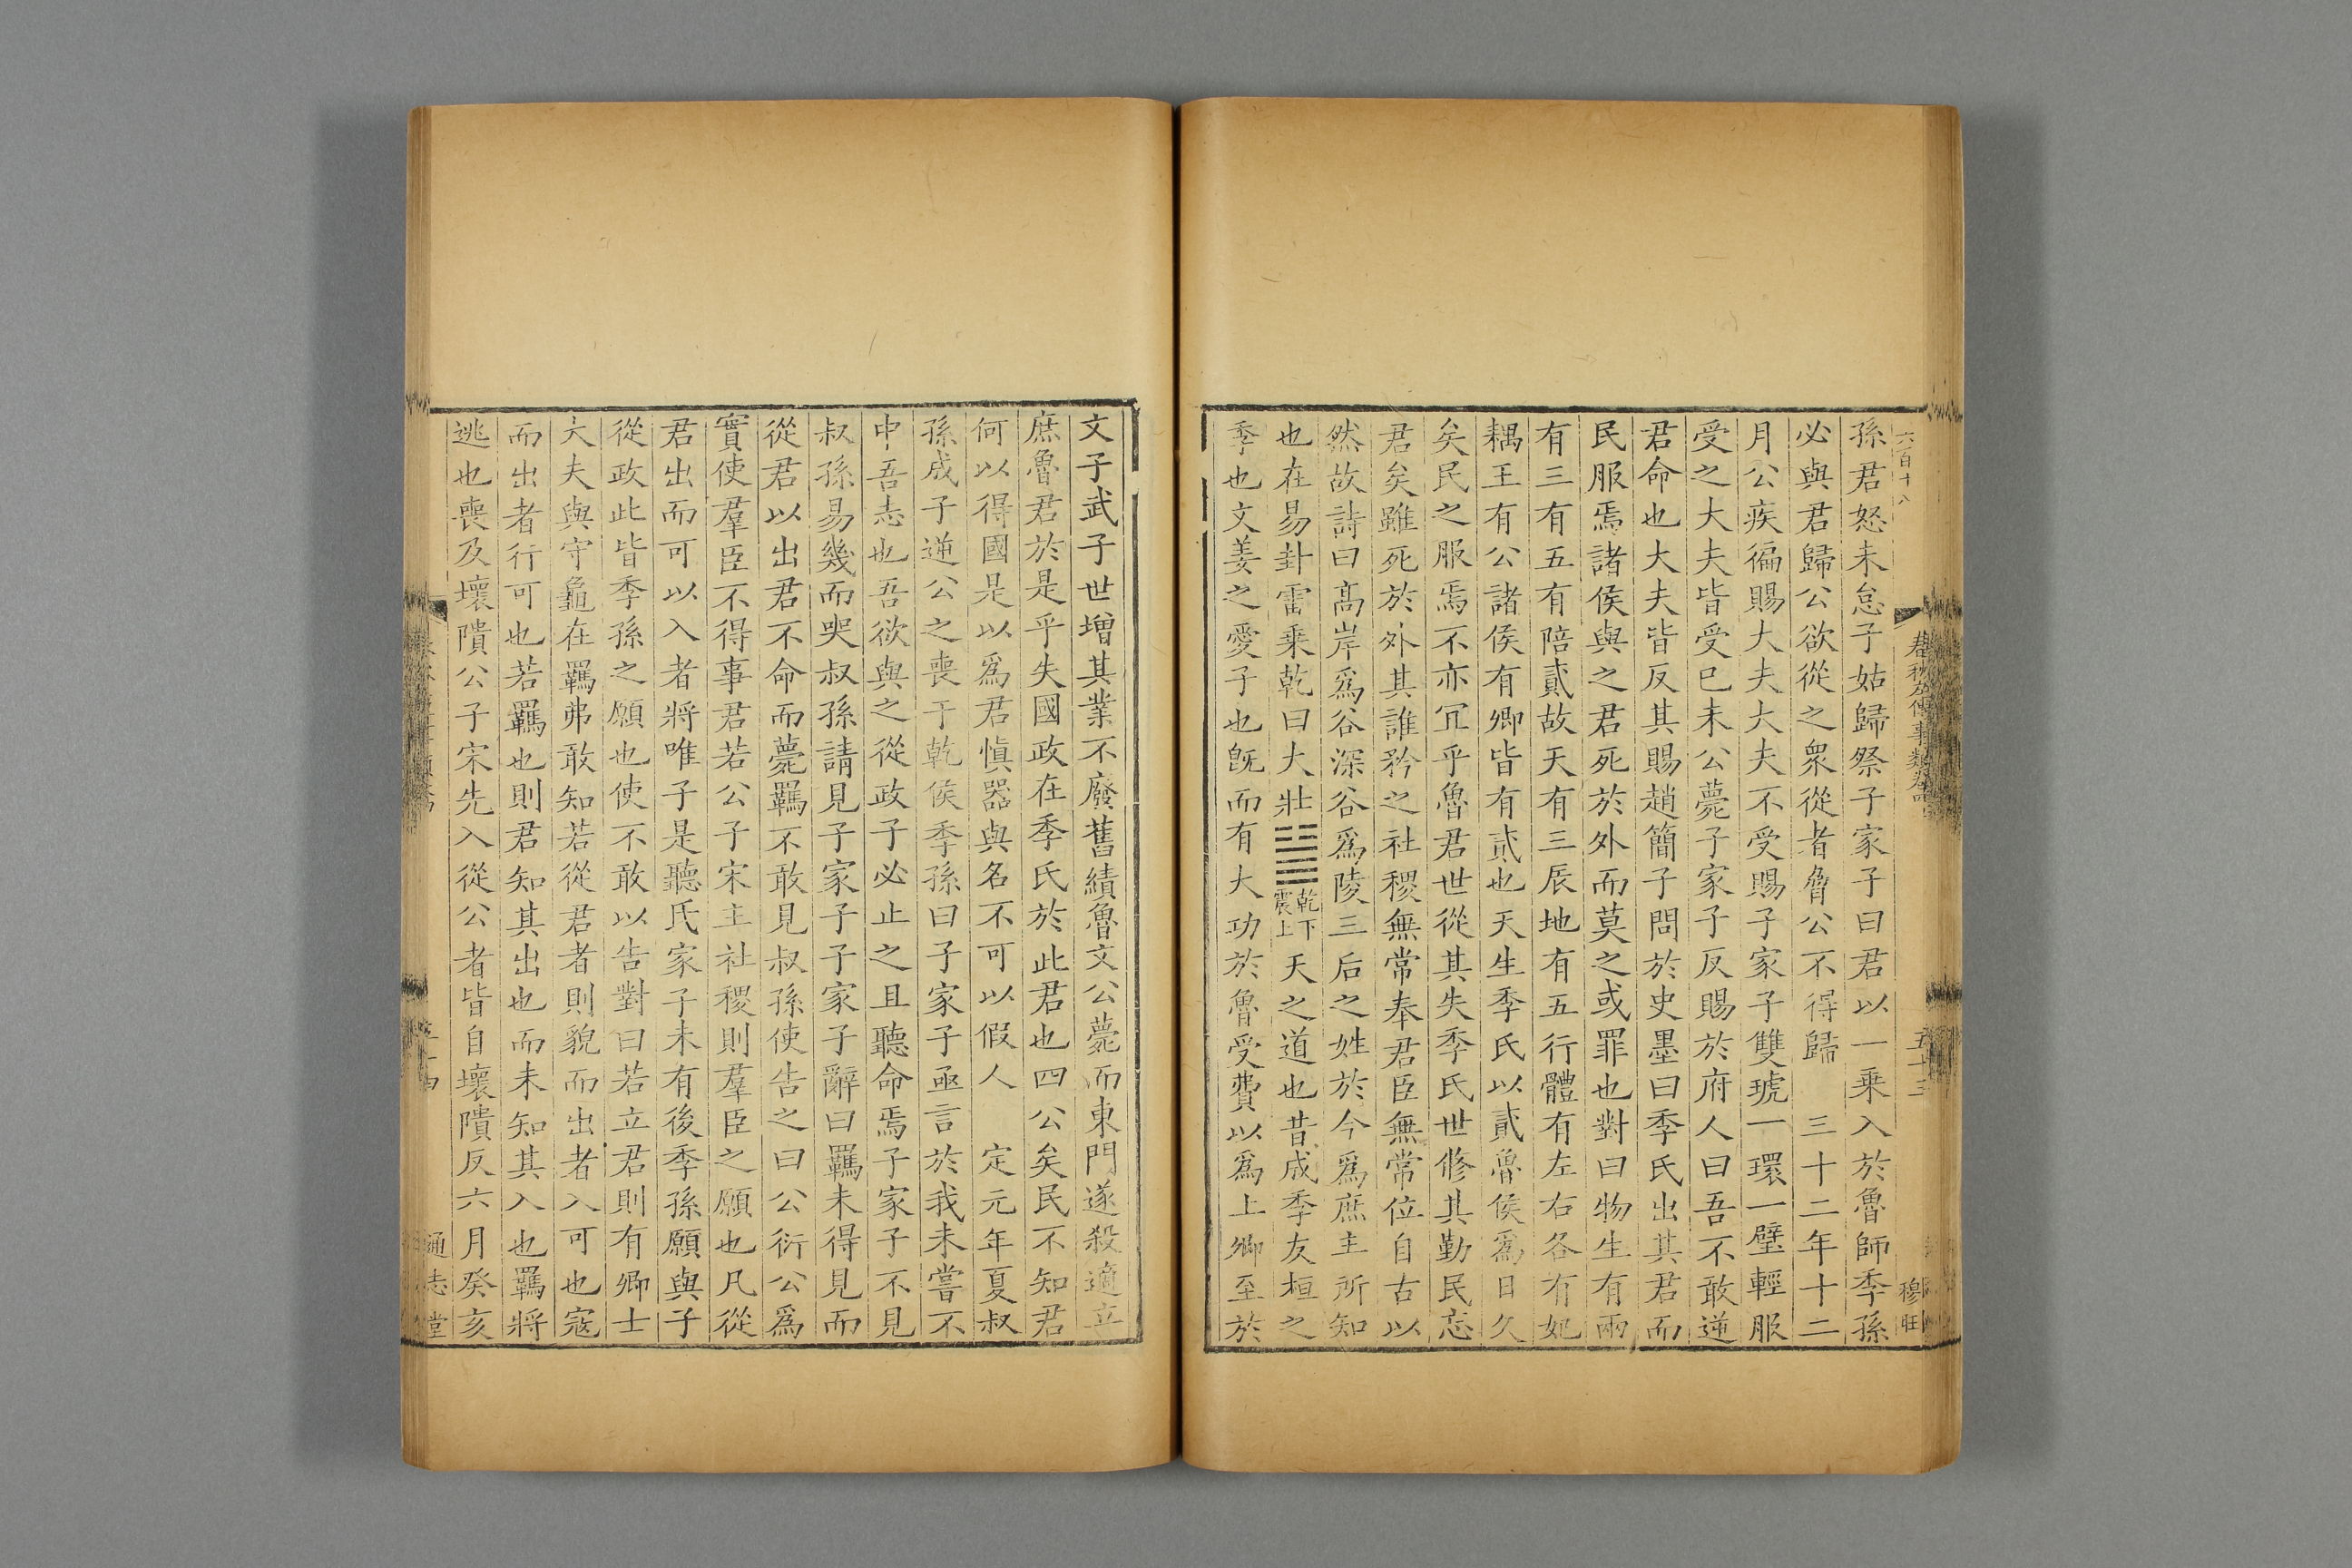 六百十八
春秋左傳事類卷四
五十三
穆旺
孫君怒未怠子姑歸祭子家子曰君以一乗入於魯師季孫
必與君歸公欲從之衆從者脅公不得歸　三十二年十二
月公疾徧賜大夫大夫不受賜子家子雙琥一環一璧輕服
受之大夫皆受已未公薨子家子反賜於府人曰吾不敢逆
君命也大夫皆反其賜趙簡子問於史墨曰季氏出其君而
民服焉諸侯與之君死於外而莫之或罪也對曰物生有兩
有三有五有陪貳故天有三辰地有五行體有左右各有妃
耦王有公諸侯有卿皆有貳也天生季氏以貳魯侯爲日久
矣民之服焉不亦冝乎魯君世從其失季氏世修其勤民忘
君矣雖死於外其誰矜之社稷無常奉君臣無常位自古以
然故詩曰髙岸爲谷深谷爲陵三后之姓於今爲庶主所知
也在易卦雷乗乾曰大壯䷡乾下震上天之道也昔成季友桓之
季也文姜之愛子也旣而有大功於魯受費以爲上卿至於
文子武子世增其業不廢舊績魯文公薨而東門遂殺適立
庶魯君於是乎失國政在季氏於此君也四公矣民不知君
何以得國是以爲君愼器與名不可以假人　定元年夏叔
孫成子逆公之喪于乾侯季孫曰子家子亟言於我未嘗不
中吾志也吾欲與之從政子必止之且聽命焉子家子不見
叔孫易幾而哭叔孫請見子家子子家子辭曰羈未得見而
從君以出君不命而薨羈不敢見叔孫使告之曰公衍公爲
實使羣臣不得事君若公子宋主社稷則羣臣之願也凡從
君出而可以入者將唯子是聽氏家子未有後季孫願與子
從政此皆季孫之願也使不敢以告對曰若立君則有卿士
大夫與守龜在羈弗敢知若從君者則貌而出者入可也寇
而出者行可也若羈也則君知其出也而未知其入也羈將
逃也喪及壞隤公子宋先入從公者皆自壞隤反六月癸亥
通志堂